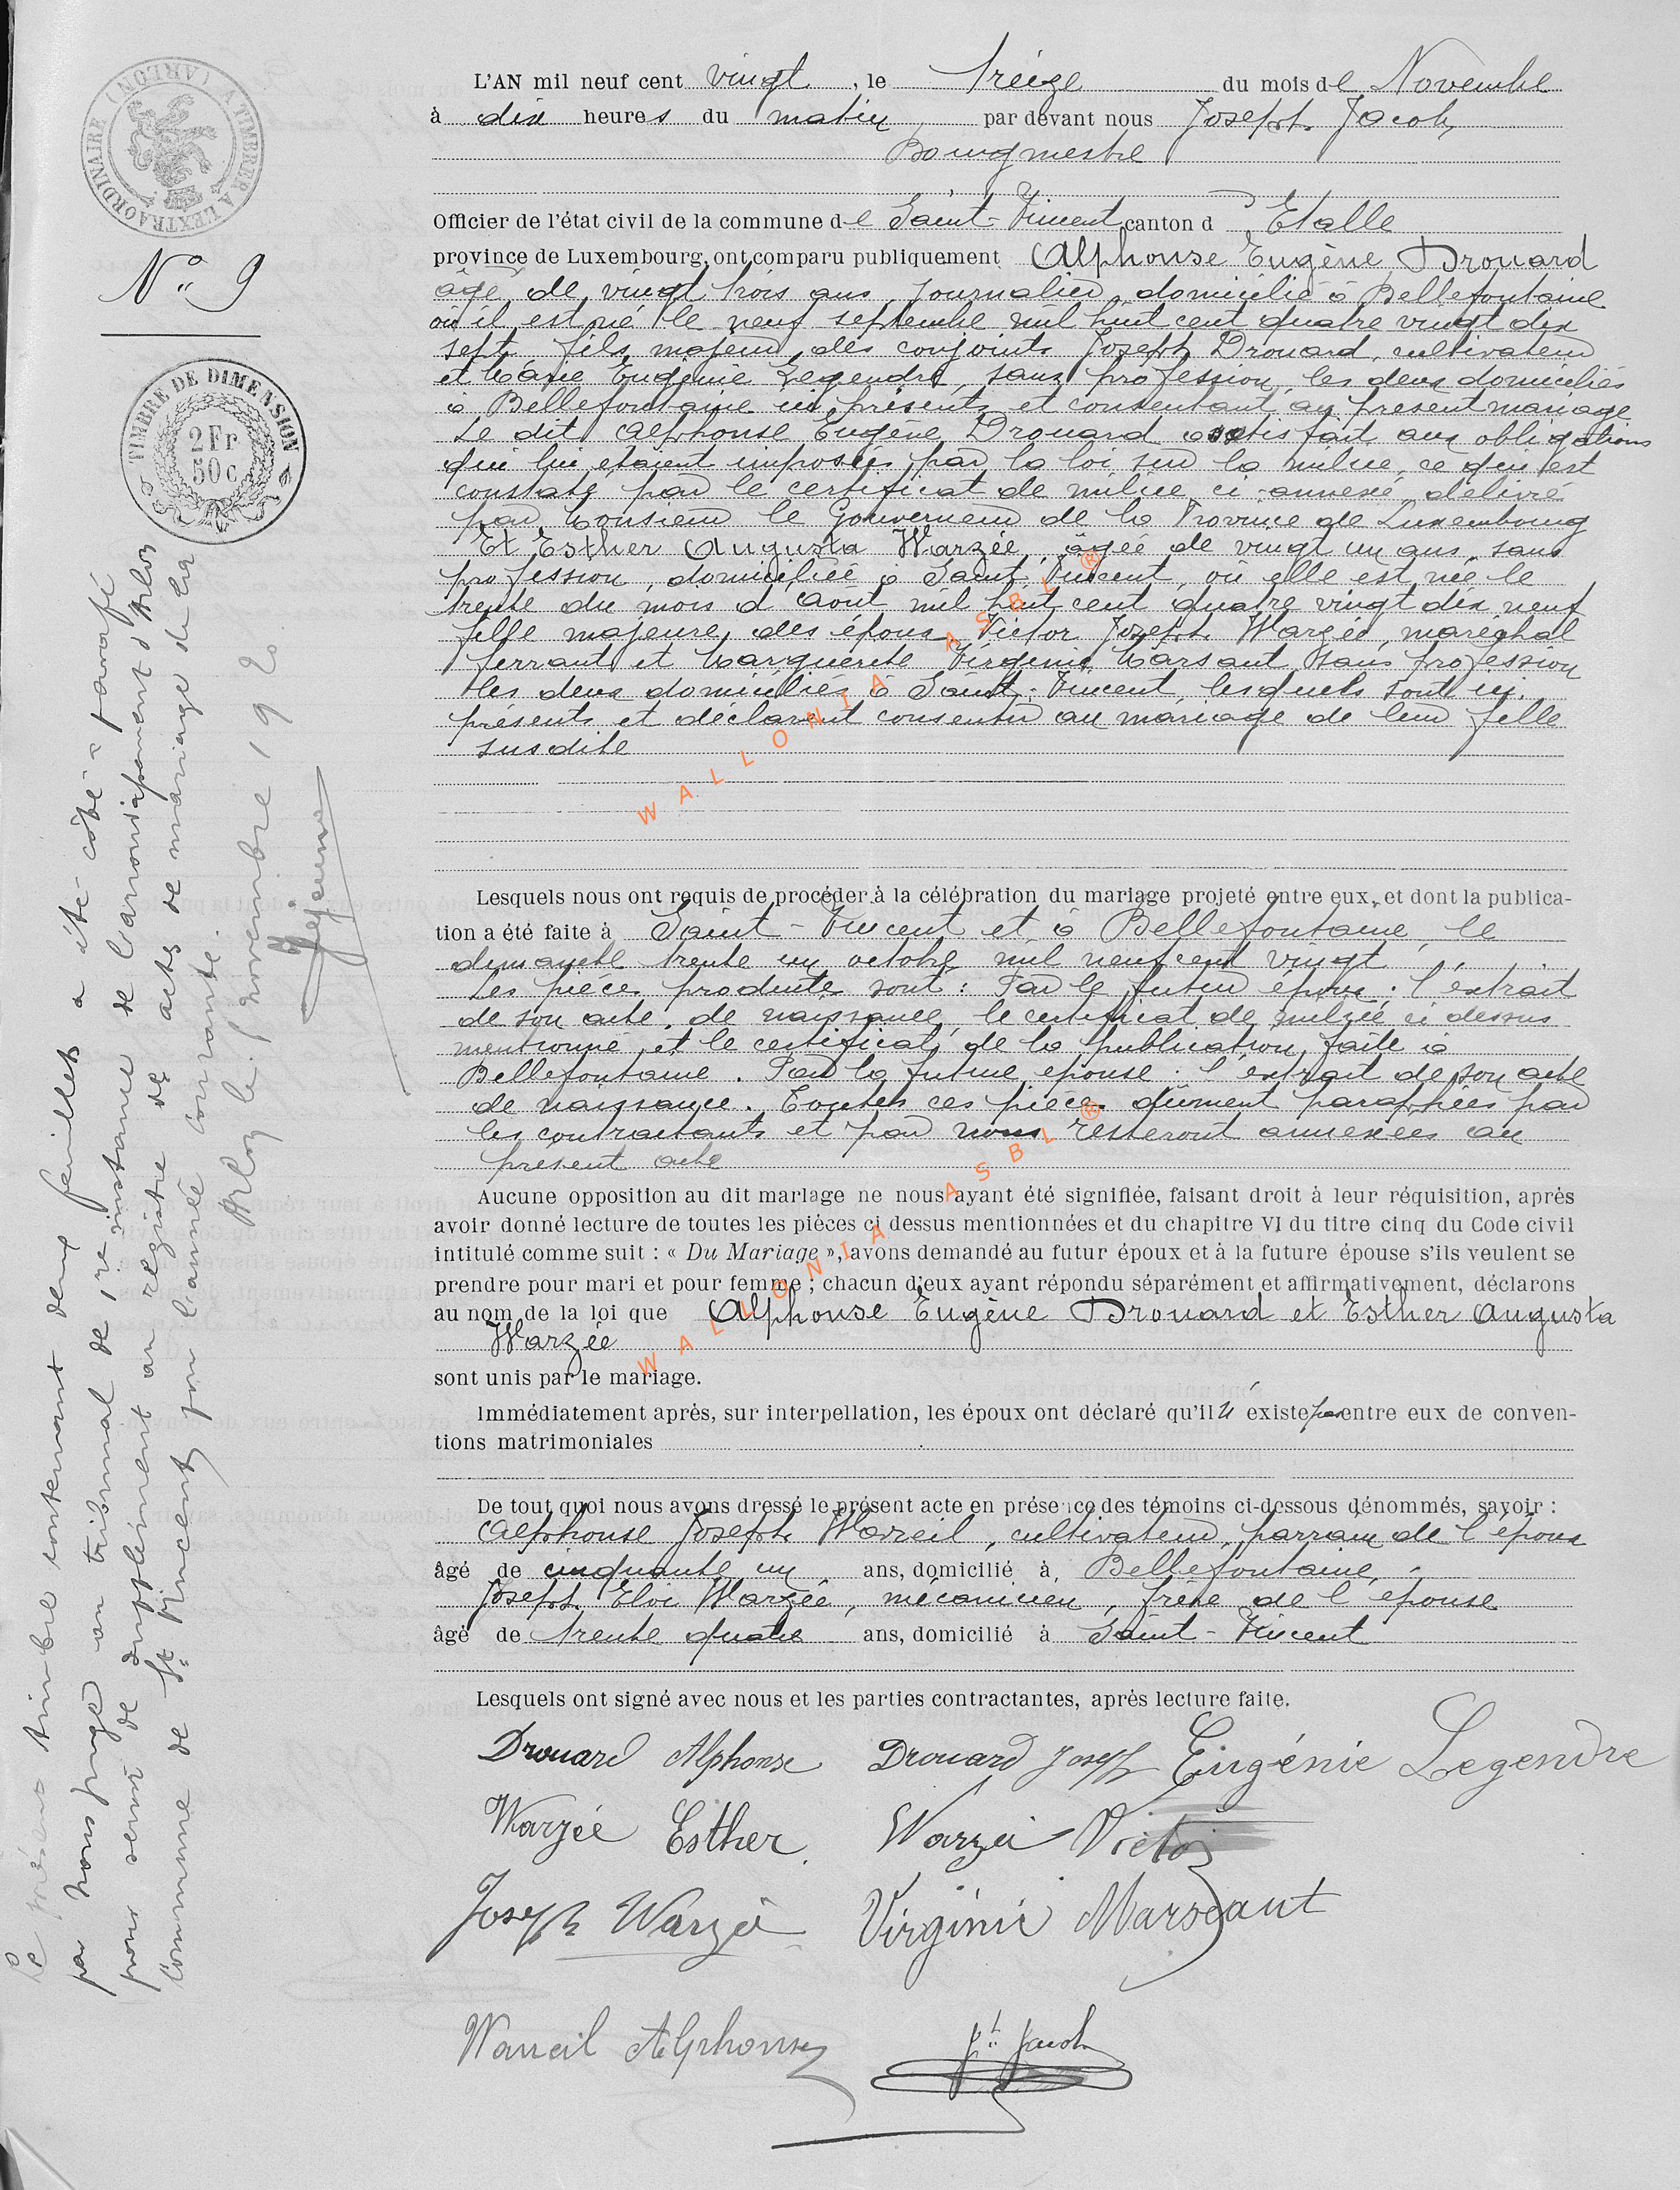 L'AN mil neuf cent vingt, le Treize du mois de Novembre
à dix heures du matin par devant nous Joseph Jacob,
Bourgmestre
Officier de l'état civil de la commune de Saint-Vincent canton d'Etalle
province de Luxembourg, ont comparu publiquement Alphonse Eugène Drouard
âgé de vingt trois ans, journalier, domicilié à Bellefontaine
où il est né le neuf septembre mil huit cent quatre vingt dix
sept, fils majeur des conjoints Joseph Drouard, cultivateur
et Marie Eugénie Legendre, sans profession, les deux domiciliés
à Bellefontaine ici présents et consentant au présent mariage
Le dit Alphonse Eugène Drouard a satisfait aux obligations
qui lui étaient imposées par la loi sur la milice, ce qui est
constaté par le certificat de milice ci-annexé délivré
par Monsieur le Gouverneur de la Province de Luxembourg
Et Esther Augusta Warzée, âgée de vingt un ans, sans
profession, domiciliée à Saint Vincent, où elle est née le
trente du mois d'Aout mil huit cent quatre vingt dix neuf
fille majeure des époux Victor Joseph Warzée, maréchal
ferrant et Marguerite Virginie Marsaut, sans profession
les deux domiciliés à Saint-Vincent, lesquels sont ici
présents et déclarent consentir au mariage de leur fille
susdite
Lesquels nous ont requis de procéder à la célébration du mariage projeté entre eux, et dont la publica-
tion a été faite à Saint-Vincent et à Bellefontaine, le
dimanche trente un octobre mil neuf cent vingt
Les pièces produites sont : Par le futur époux : l'extrait
de son acte de naissance, le certificat de milice ci dessus
mentionné, et le certificat de la publication faite à
Bellefontaine. Par la future épouse : l'extrait de son acte
de naissance. Toutes ces pièces dûment paraphées par
les contractants et par nous resteront annexées au
présent acte
Aucune opposition au dit mariage ne nous ayant été signifiée, faisant droit à leur réquisition, après
avoir donné lecture de toutes les pièces ci dessus mentionnées et du chapitre VI du titre cinq du Code civil
intitulé comme suit : « Du Mariage », avons demandé au futur époux et à la future épouse s'ils veulent se
prendre pour mari et pour femme ; chacun d'eux ayant répondu séparément et affirmativement, déclarons
au nom de la loi que Alphonse Eugène Drouard et Esther Augusta
Warzée
sont unis par le mariage.
Immédiatement après, sur interpellation, les époux ont déclaré qu'il n'existe pas entre eux de conven-
tions matrimoniales
De tout quoi nous avons dressé le présent acte en présence des témoins ci-dessous dénommés, savoir :
Alphonse Joseph Wareil, cultivateur, parrain de l'époux
âgé de cinquante un ans, domicilié à Bellefontaine,
Joseph Eloi Warzée, mécanicien, frère de l'épouse
âgé de trente quatre ans, domicilié à Saint-Vincent
Lesquels ont signé avec nous et les parties contractantes, après lecture faite.
Drouard Alphonse Drouard Joseph Eugénie Legendre
Warzée Esther Warzée Victor
Joseph Warzée Virginie Marsaut
Waucil Alphonse Jh Jacob
A TIMBRER A L'EXTRAORDINAIRE (ARLON)
N° 9
TIMBRE DE DIMENSION
2 Fr
50 c
Le présent timbre contenant deux feuillets a été côté et parafé
par nous juge au tribunal de 1re instance de l'arrondissement d'Arlon
pour servir de supplément au registre de actes de mariage de la
Commune de St Vincent pour l'année courante.
Arlon le novembre 1920
Lejeune
WALLONIA ASBL ®
WALLONIA ASBL ®